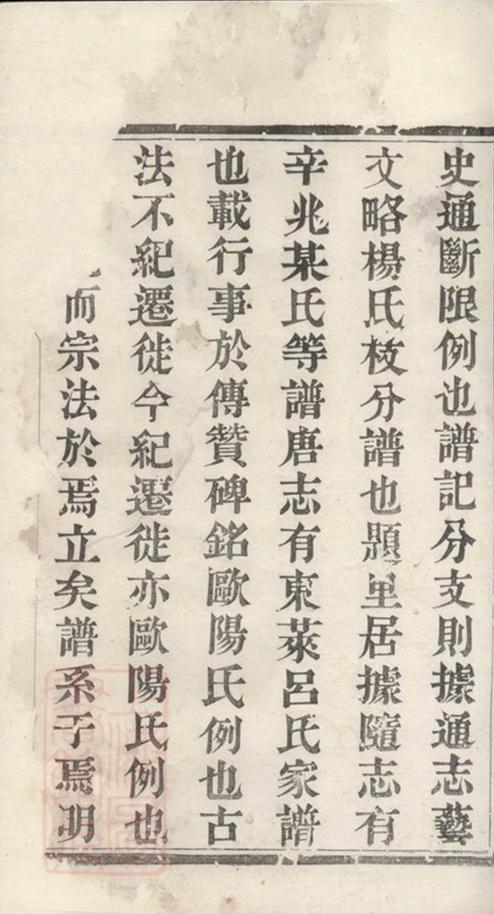 史通斷限例也譜記分支則據通志藝
文略楊氏枝分譜也題里居據隨志有
辛兆某氏等譜唐志有東萊呂氏家譜
也載行事於傳贊碑銘歐陽氏例也古
法不紀遷徙今紀遷徙亦歐陽氏例也
而宗法於焉立矣譜系于焉明